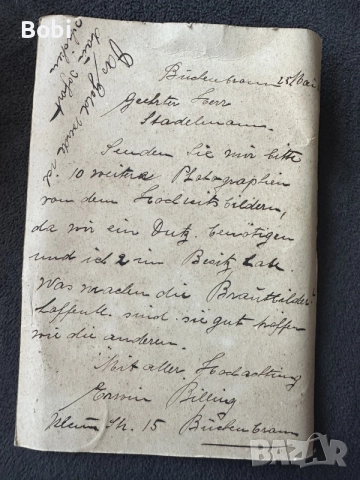 Bückenbronn 25 Mai
Geehrter Herr
Stadelmann.
Senden Sie mir bitte
10 weitere Photographien
von dem Hochzeitsbildern,
da wir ein Dutz. benötigen
und ich 2 im Besitz habe.
Was machen die Brautbilder
hoffentl. sind sie gut
wie die anderen.
Mit aller Hochachtung
Erwin Billing
15
Das Geld
dann sofort
BAZAR
bg